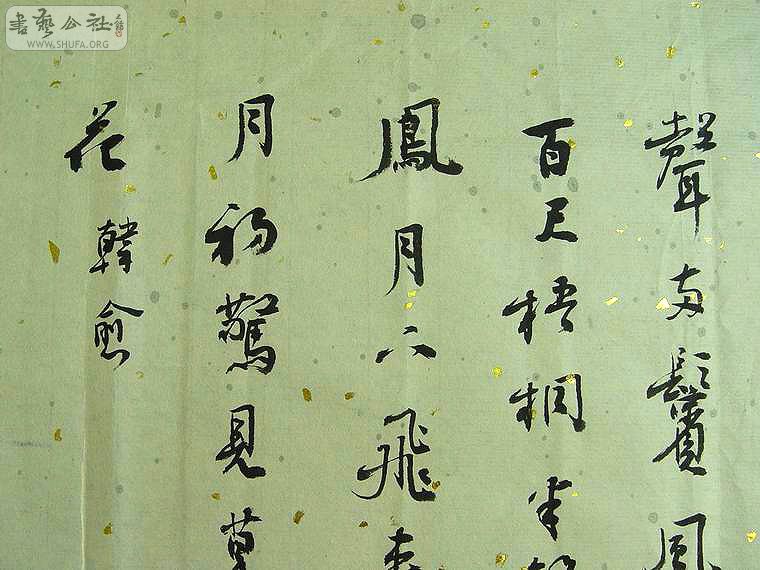 書藝公社
WWW.SHUFA.ORG
聲两鬢風
百尺梧桐半
鳳月下飛
月初驚見草
花
韓愈